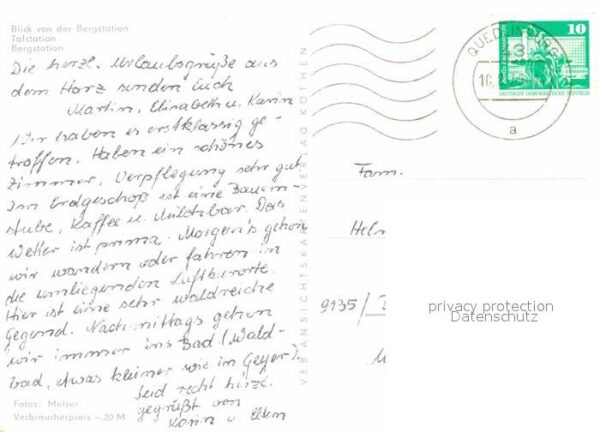 Blick von der Bergstation
Talstation
Bergstation
Die herzl. Urlaubsgrüße aus
dem Harz senden Euch
Martin, Elisabeth u. Karin
Wir haben es erstklassig ge-
troffen. Haben ein schönes
Zimmer, Verpflegung sehr gut
Im Erdgeschoß ist eine Bauern-
stube, Kaffee u. Milchbar. Das
Wetter ist prima. Morgens gehen
wir wandern oder fahren in
die umliegenden Luftkurorte.
Hier ist eine sehr waldreiche
Gegend. Nachmittags gehen
wir immer ins Bad (Wald-
bad, etwas kleiner wie in Geyer).
Seid recht herzl.
gegrüßt von
Karin u. Eltern
Fotos: Melzer
Verbraucherpreis -,20 M
VEB ANSICHTSKARTENVERLAG KÖTHEN
QUEDLINBURG
43
a
10
DEUTSCHE DEMOKRATISCHE REPUBLIK
Fam.
Hel
9135/
privacy protection
Datenschutz